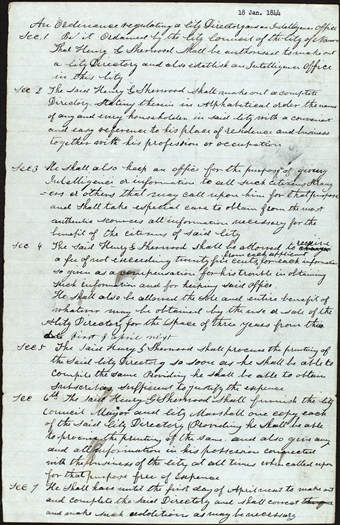 18 Jan. 1844
An Ordinance regulating a City Directory and an Intelligence Office
Sec. 1 Be it Ordained by the City Council of the City of Nauvoo
That Henry G Sherwood Shall be authorised to make out
a City Directory and also establish an Intelligence Office
in this City
Sec 2 The Said Henry G Sherwood Shall make out a complete
Directory. Stating therein in Alphabetical order the name
of any and every householder in said City with a convenient
and easy reference to his place of residence and business
together with his profession or occupation
Sec 3 He Shall also keep an office for the purpose of giving
Intelligence or information to all such citizens Strang
ers or others that may call upon him for that purpose
and Shall take especial care to obtain from the most
authentic sources all information necessary for the
benefit of the citizens of Said City
Sec 4 The Said Henry G Sherwood Shall be allowed to receive
from each applicant
a fee of not exceeding twenty five cents for each information
so given as a compensation for his trouble in obtaining
Such information and for keeping said office
He Shall also be allowed the sole and entire benefit of
whatever may be obtained by the use or sale of the
City Directory for the space of three years from the
first of April next
Sec 5 The Said Henry G Sherwood Shall procure the printing of
the Said City Directory so soon as he Shall be able to
compile the same Providing he shall be able to obtain
Subscribers sufficient to justify the expence
Sec 6th The Said Henry G Sherwood Shall furnish the City
Council Mayor and City Marshall one copy each
of the Said City Directory (Providing he Shall be able
to procure the printing of the same. and also give any
and all information in his possession connected
with the business of the City at all times when called upon
for that purpose free of Expence
Sec 7 He Shall have until the first day of April next to make out
and complete the Said Directory and Shall correct
and make such additions as may be necessary